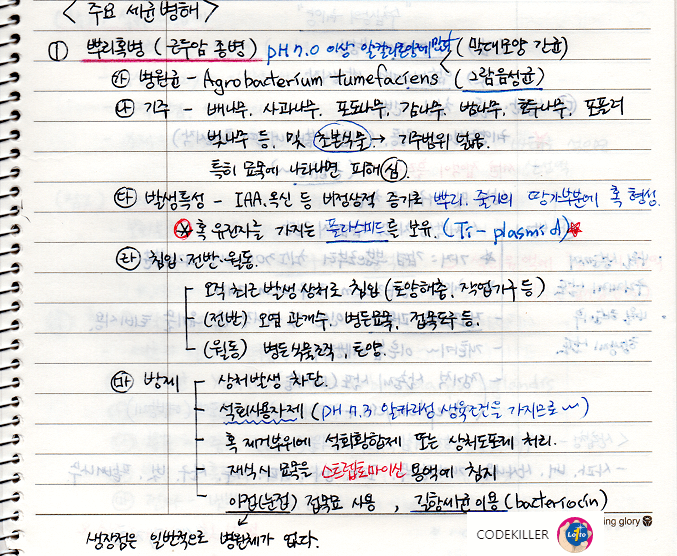 < 주요 세균병해 >
① 뿌리혹병 (근두암종병) pH 7.0 이상 알칼리토양에 만발 (막대모양 간균)
㉮ 병원균 - Agrobacterium tumefaciens (그람음성균)
㉯ 기주 - 배나무, 사과나무, 포도나무, 감나무, 밤나무, 호두나무, 포플러
벚나무 등, 및 초본식물 → 기주범위 넓음.
특히 묘목에 나타내면 피해 심
㉰ 발생특성 - IAA.옥신 등 비정상적 증가로 뿌리. 줄기의 땅가부분에 혹 형성.
※ 혹 유전자를 가지는 플라스미드를 보유. (Ti-plasmid)
㉱ 침입·전반·월동.
오직 최근 발생 상처로 침입 (토양해충, 작업기구 등)
(전반) 오염 관개수. 병든묘목, 접목도구 등.
(월동) 병든식물조직, 토양.
㉲ 방제 상처발생 차단.
석회사용자제 (pH 7.3 알카리성 생육조건을 가지므로~)
혹 제거부위에 석회황합제 또는 상처도포제 처리.
재식시 묘목을 스트렙토마이신 용액에 침지
아접(눈접) 접목묘 사용, 길항세균이용 (bacteriocin)
생장점은 일반적으로 병원체가 없다.
ing glory
CODEKILLER
Lofto